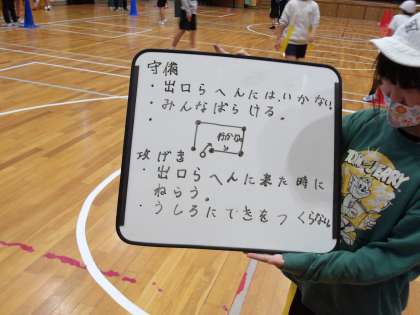 守備
・出口らへんにはいかない。
・みんなばらける。
・
行かない
攻げき
・出口らへんに来た時に
ねらう。
・うしろにてきをつくらない
TOM and JERRY